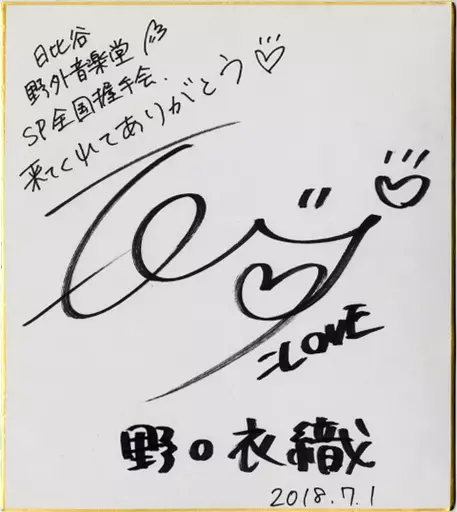 日比谷
野外音楽堂
SP全国握手会.
来てくれてありがとう♡
=LOVE
野口衣織
2018.7.1